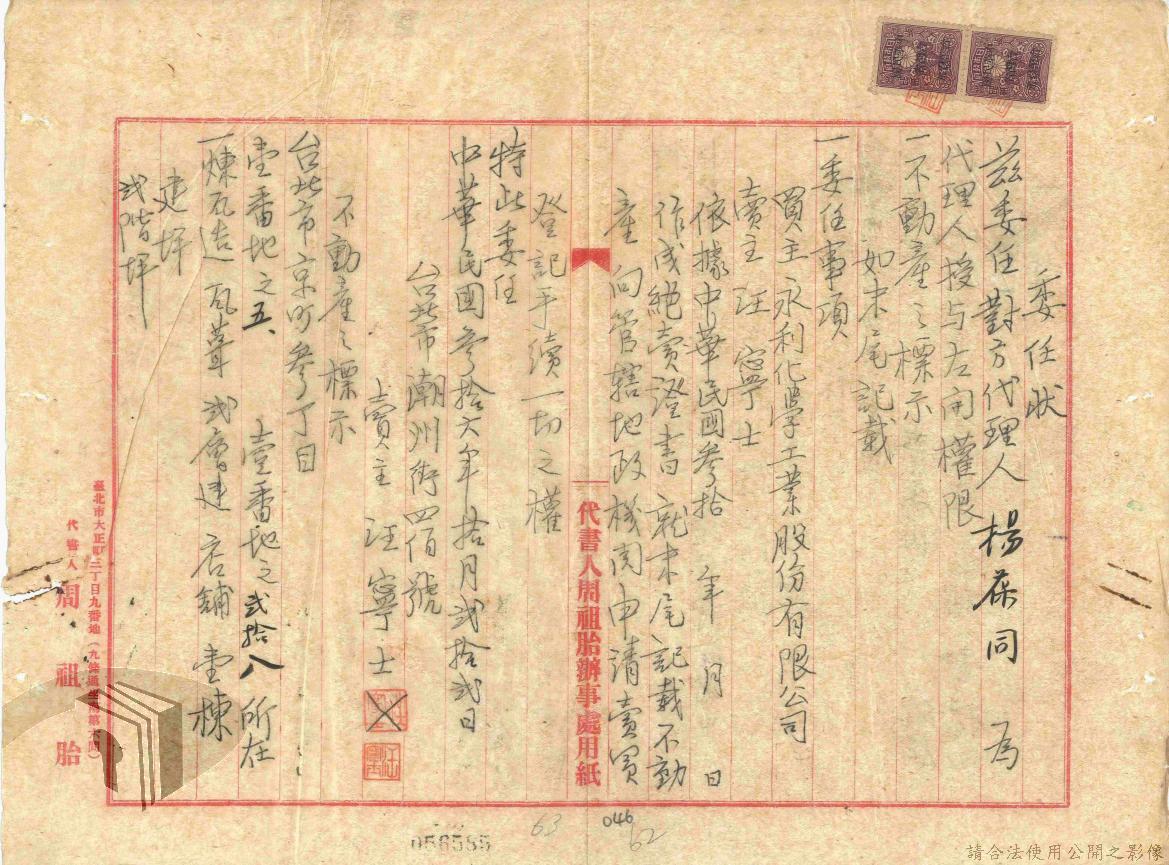 委任狀
茲委任對方代理人 楊葆同 為
代理人授与左開權限
一不動產之標示
如末尾記載
一委任事項
買主 永利化學工業股份有限公司
賣主 汪寧士
依據中華民國參拾 年 月 日
作成絕賣證書 就末尾記載不動
產 向管轄地政機関申請賣買
登記手續一切之權
特此委任
中華民國參拾六年拾月弍拾弍日
台北市潮州街四佰號
賣主 汪寧士
不動產之標示
台北市京町參丁目
壹番地之五、 壹番地之弍拾八 所在
一煉瓦造 瓦葺 弍層建 店舖 壹棟
建坪
弍階坪
代書人周祖胎辦事處用紙
臺北市大正町三丁目九番地
代書人 周祖胎
056555
63
046
62
請合法使用公開之影像